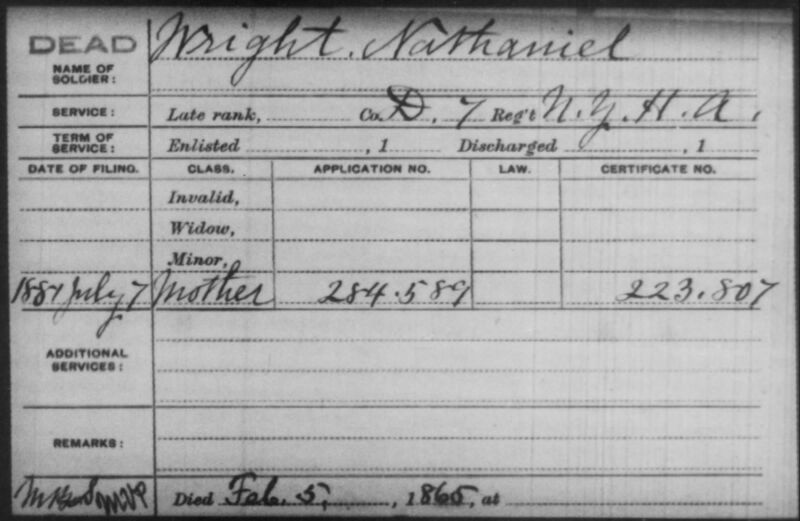 DEAD
Wright, Nathaniel
NAME OF
SOLDIER:
SERVICE: Late rank, Co. D, 7 Reg't N.Y.H.A.
TERM OF
SERVICE: Enlisted , 1 Discharged , 1
DATE OF FILING. CLASS. APPLICATION NO. LAW. CERTIFICATE NO.
Invalid,
Widow,
Minor,
July 7 Mother 284.589 223.807
ADDITIONAL
SERVICES:
REMARKS:
Died Feb. 5, , 1865, at